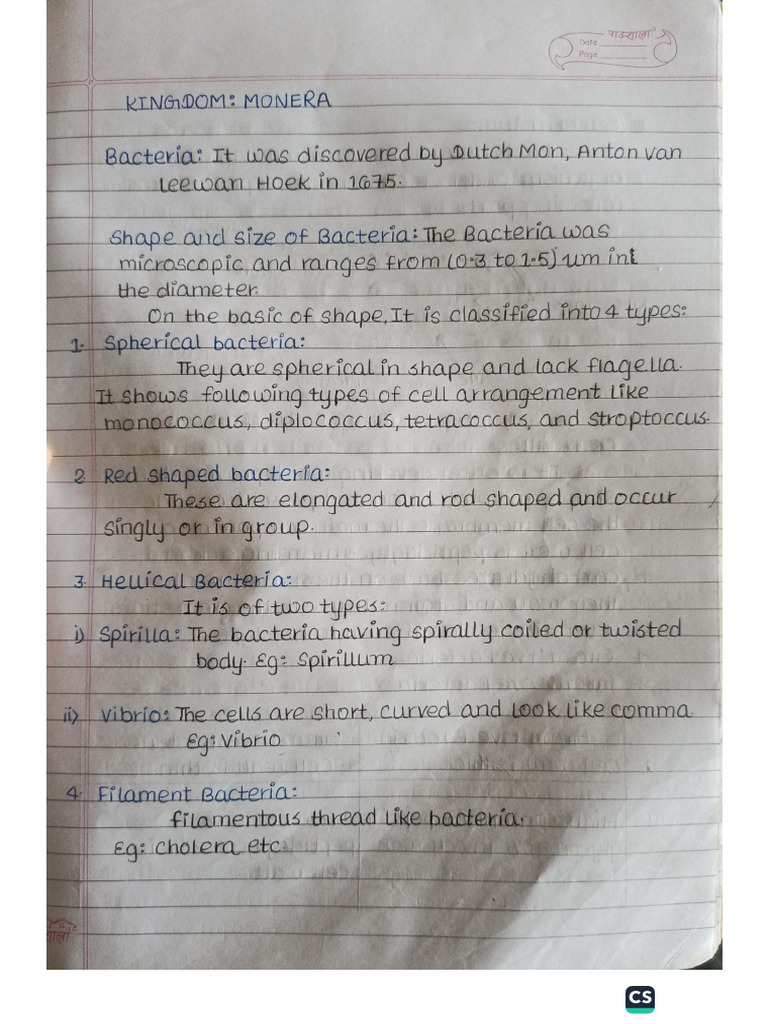 पाठशाला
Date
Page
KINGDOM: MONERA
Bacteria: It was discovered by Dutch Mon, Anton van
Leewan Hoek in 1675.
Shape and size of Bacteria: The Bacteria was
microscopic and ranges from (0.3 to 1.5) um int
the diameter.
On the basic of shape, It is classified into 4 types:
1. Spherical bacteria:
They are spherical in shape and lack flagella.
It shows following types of cell arrangement like
monococcus, diplococcus, tetracoccus, and stroptoccus.
2 Red shaped bacteria:
These are elongated and rod shaped and occur
singly or in group.
3. Hellical Bacteria:
It is of two types:
i) Spirilla: The bacteria having spirally coiled or twisted
body. Eg: Spirillum
ii) Vibrio: The cells are short, curved and look like comma.
Eg: Vibrio
4. Filament Bacteria:
filamentous thread like bacteria.
Eg: cholera etc.
CS